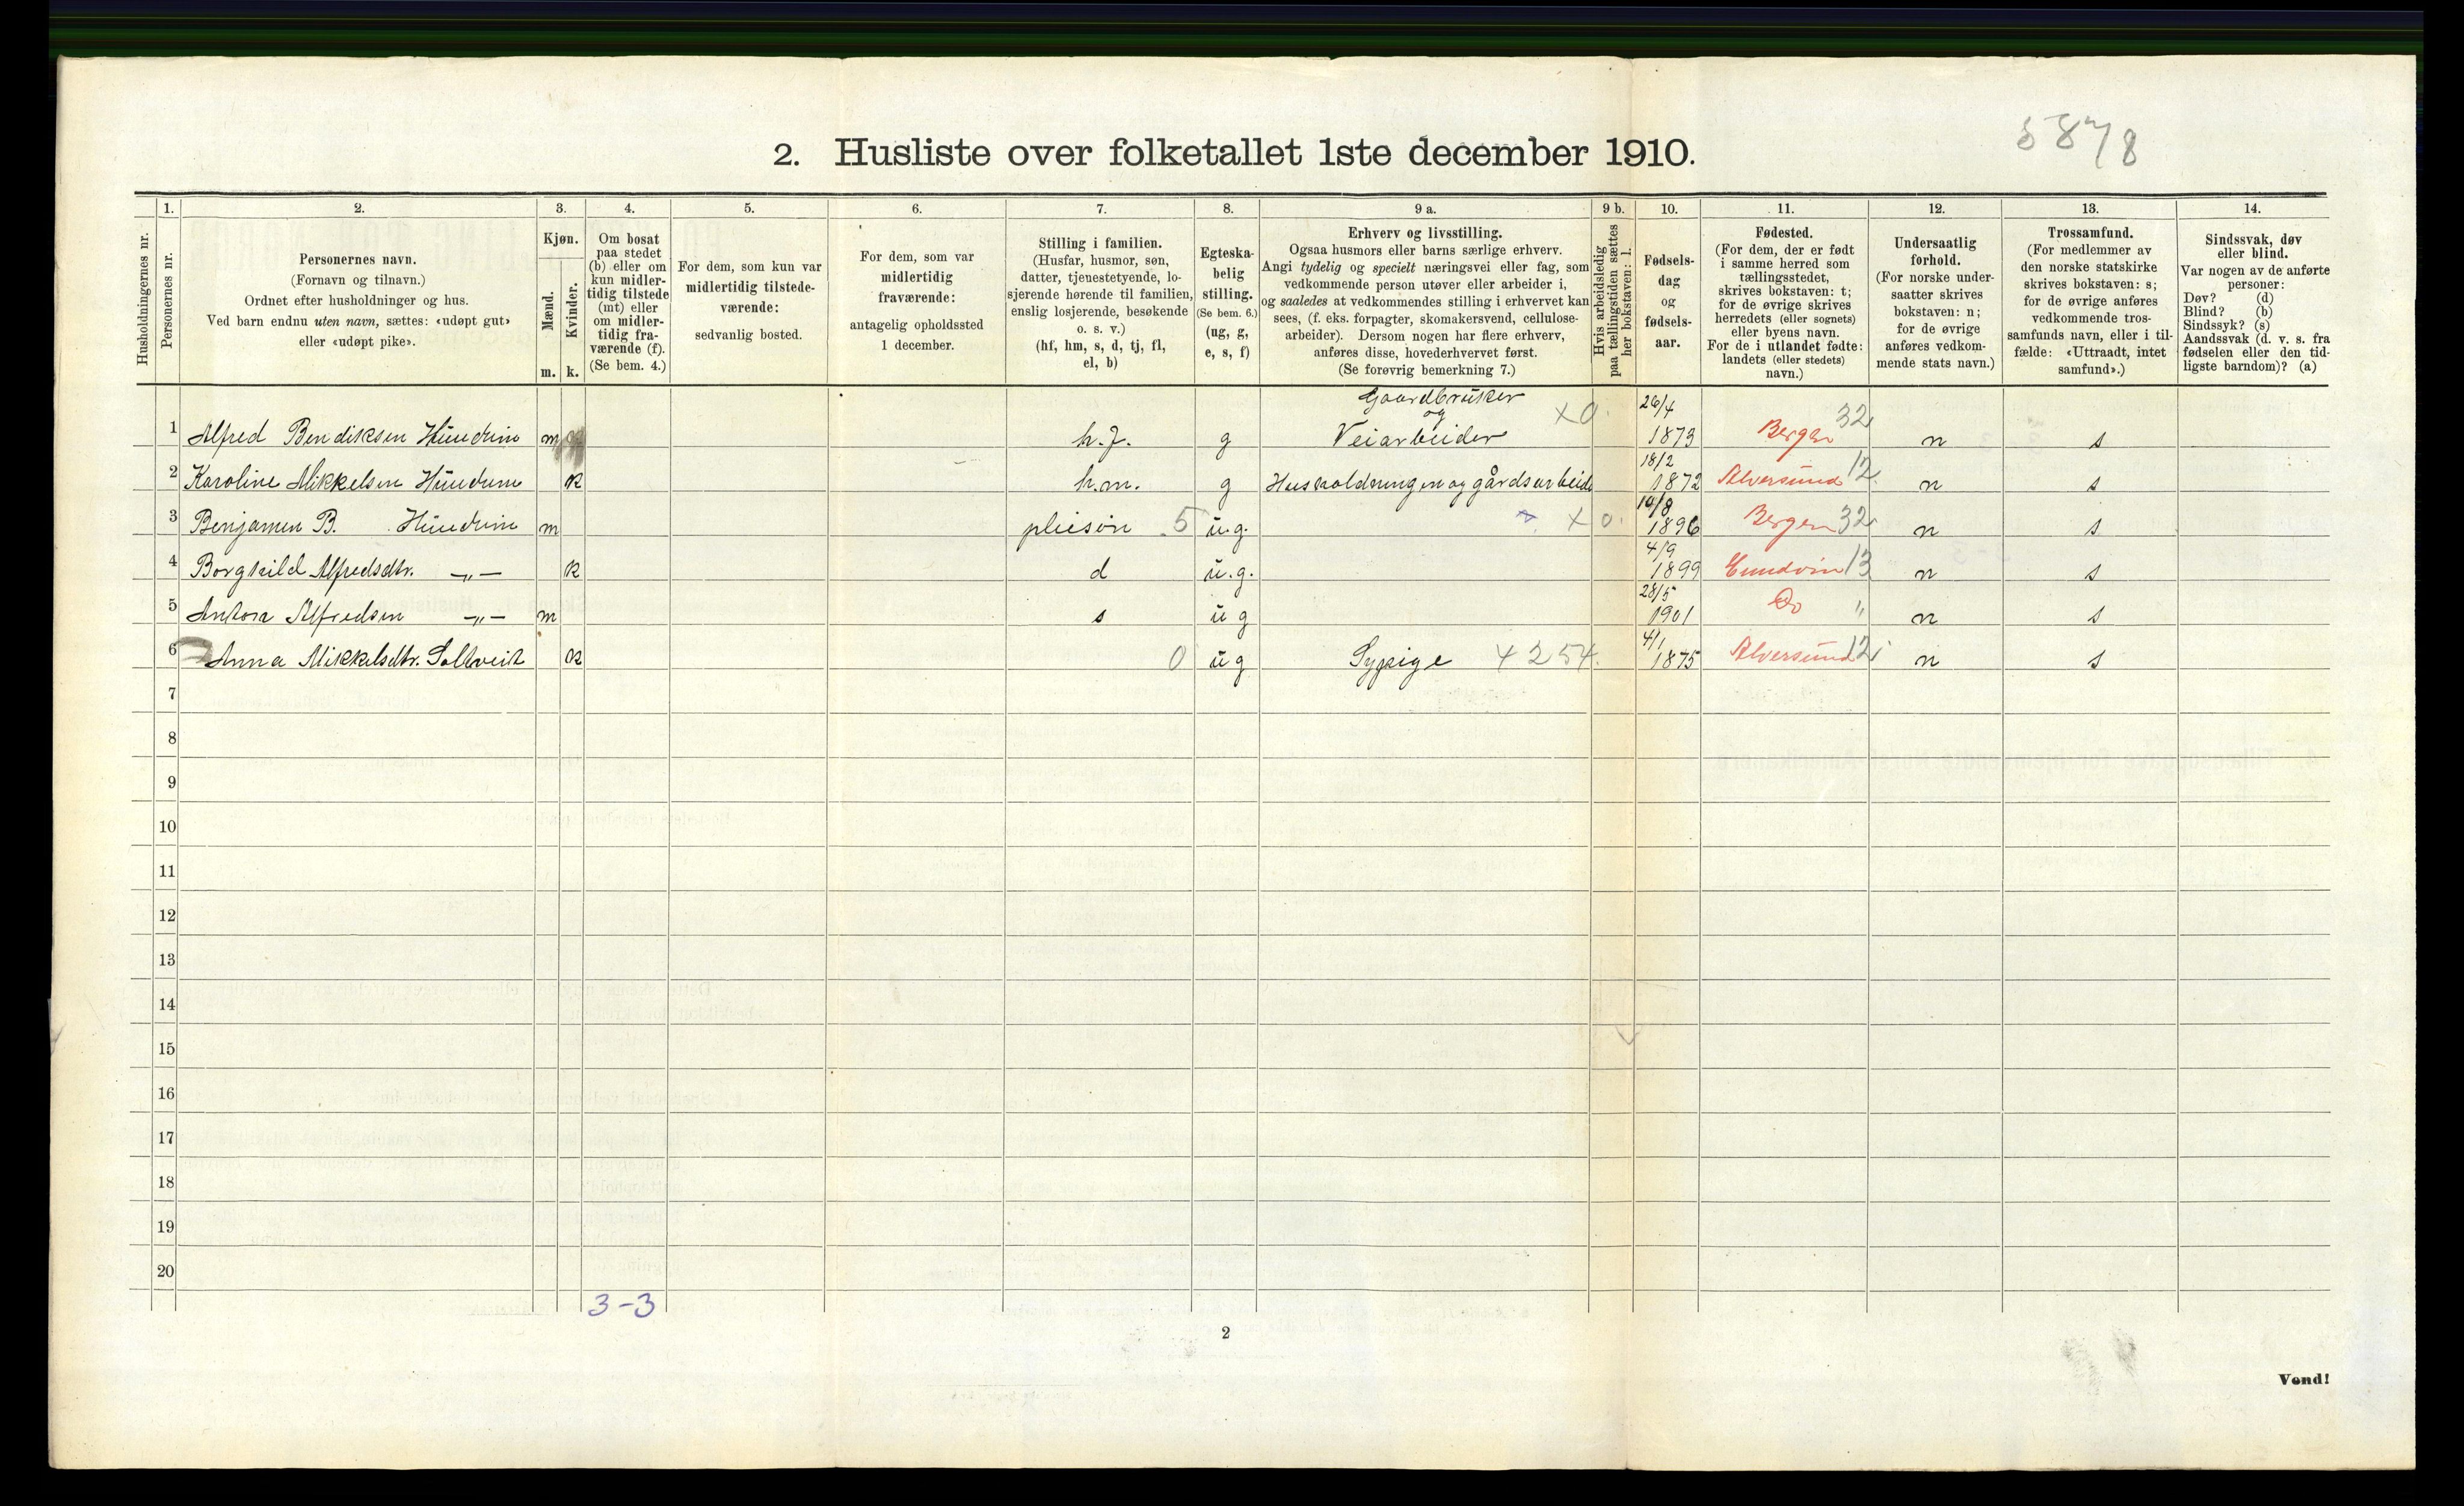 5878
2. Husliste over folketallet 1ste december 1910.
1. 2. 3. 4. 5. 6. 7. 8. 9 a. 9 b. 10. 11. 12. 13. 14.
Husholdningernes nr.
Personernes nr.
Personernes navn.
(Fornavn og tilnavn.)
Ordnet efter husholdninger og hus.
Ved barn endnu uten navn, sættes: «udøpt gut»
eller «udøpt pike».
Kjøn.
Mænd.
Kvinder.
m. k.
Om bosat
paa stedet
(b) eller om
kun midler-
tidig tilstede
(mt) eller
om midler-
tidig fra-
værende (f).
(Se bem. 4.)
For dem, som kun var
midlertidig tilstede-
værende:
sedvanlig bosted.
For dem, som var
midlertidig
fraværende:
antagelig opholdssted
1 december.
Stilling i familien.
(Husfar, husmor, søn,
datter, tjenestetyende, lo-
sjerende hørende til familien,
enslig losjerende, besøkende
o. s. v.)
(hf, hm, s, d, tj, fl,
el, b)
Egteska-
belig
stilling.
(Se bem. 6.)
(ug, g,
e, s, f)
Erhverv og livsstilling.
Ogsaa husmors eller barns særlige erhverv.
Angi tydelig og specielt næringsvei eller fag, som
vedkommende person utøver eller arbeider i,
og saaledes at vedkommendes stilling i erhvervet kan
sees, (f. eks. forpagter, skomakersvend, cellulose-
arbeider). Dersom nogen har flere erhverv,
anføres disse, hovederhvervet først.
(Se forøvrig bemerkning 7.)
Hvis arbeidsledig
paa tællingstiden sættes
her bokstaven: l.
Fødsels-
dag
og
fødsels-
aar.
Fødested.
(For dem, der er født
i samme herred som
tællingstedet,
skrives bokstaven: t;
for de øvrige skrives
herredets (eller sognets)
eller byens navn.
For de i utlandet fødte:
landets (eller stedets)
navn.)
Undersaatlig
forhold.
(For norske under-
saatter skrives
bokstaven: n;
for de øvrige
anføres vedkom-
mende stats navn.)
Trossamfund.
(For medlemmer av
den norske statskirke
skrives bokstaven: s;
for de øvrige anføres
vedkommende tros-
samfunds navn, eller i til-
fælde: «Uttraadt, intet
samfund».)
Sindssvak, døv
eller blind.
Var nogen av de anførte
personer:
Døv? (d)
Blind? (b)
Sindssyk? (s)
Aandssvak (d. v. s. fra
fødselen eller den tid-
ligste barndom)? (a)
Gaardbruker
og
1 Alfred Bendiksen m h.f. g Veiarbeider X 0. 26/4 1873 Bergen 32 n s
2 Karoline Mikkelsen k h.m. g Husholdningen og gårdsarbeide 18/2 1872 Alversund 12 n s
3 Benjamen B. m pleisøn 5 u.g. X 0. 10/8 1896 Bergen 32 n s
4 Borghild Alfredsdtr. —„— k d u.g. 4/9 1899 13 n s
5 Anton Alfredsen —„— m s u g 28/5 1901 Do „ n s
6 Anna Mikkelsdtr. k 0 u g Sypige 4254. 4/1 1875 Alversund 12 n s
7
8
9
10
11
12
13
14
15
16
17
18
19
20
3-3
2
Vend!